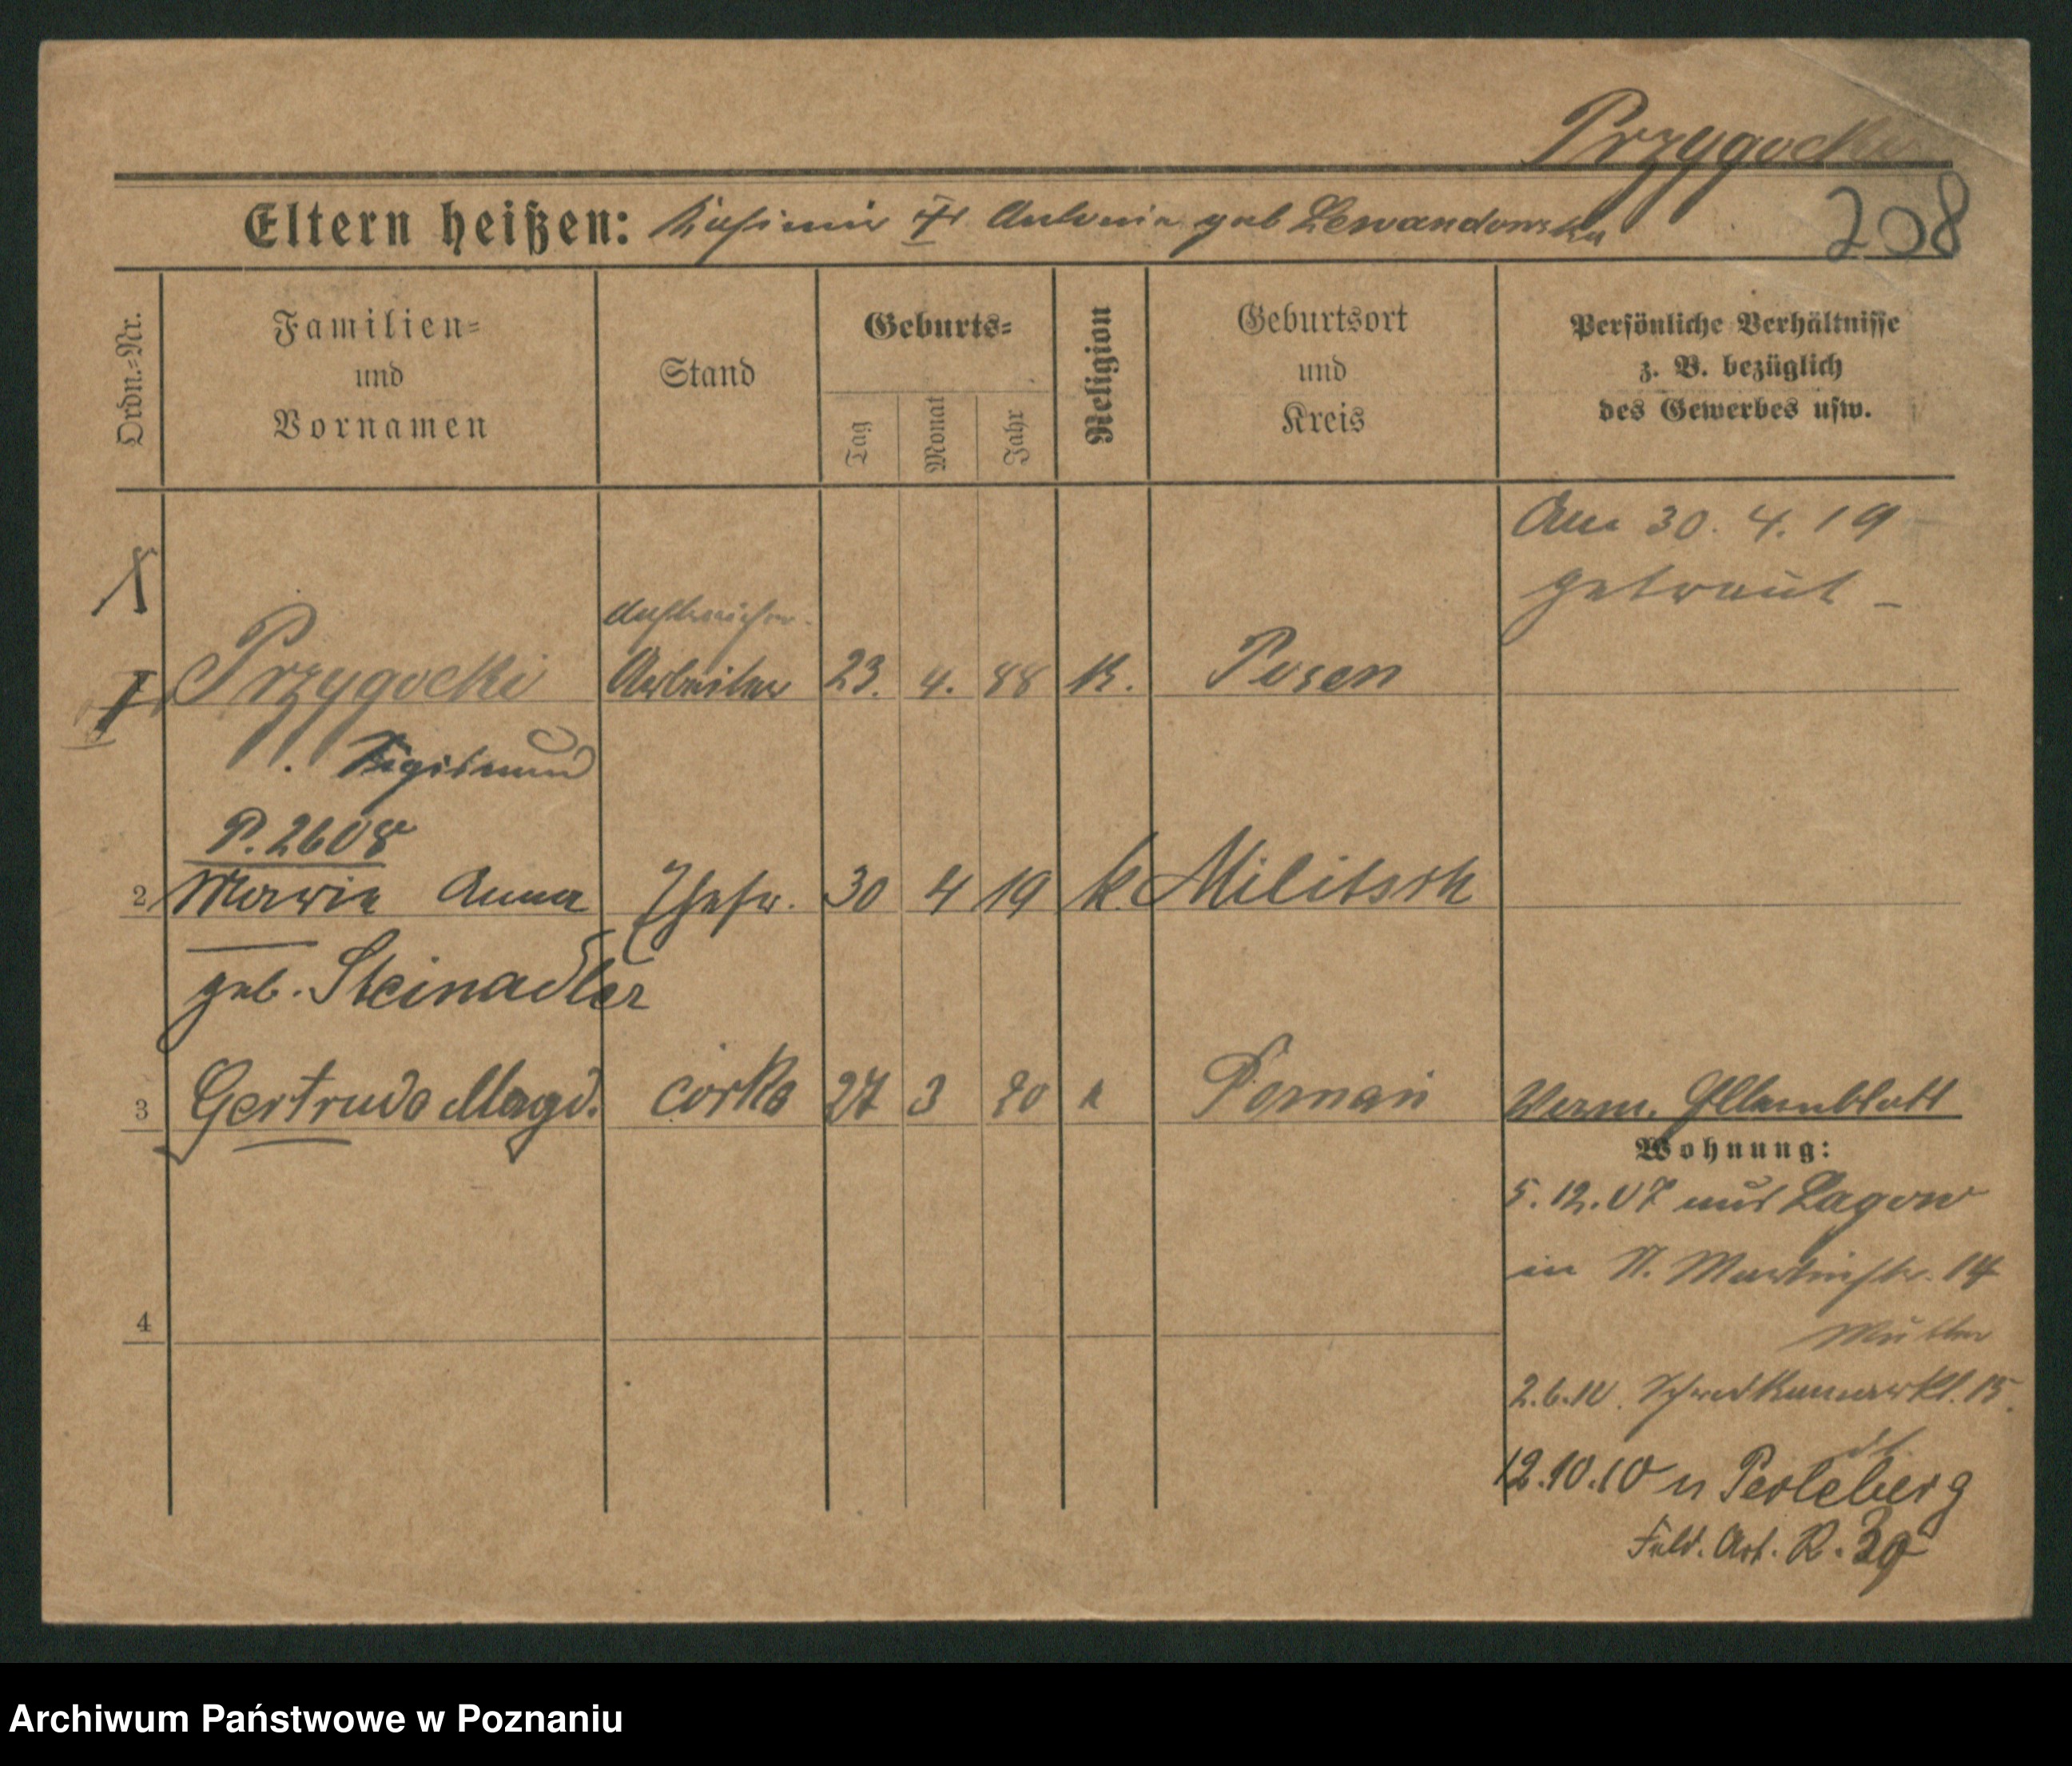 Przygocki
208
Eltern heißen: Kasimir Antonie geb Lewandowska
Ordn.=Nr.
Familien=
und
Vornamen
Stand
Geburts=
Tag
Monat
Jahr
Religion
Geburtsort
und
Kreis
Persönliche Verhältnisse
z. B. bezüglich
des Gewerbes usw.
Am 30. 4. 19
getraut –
Anstreicher
Przygocki Arbeiter 23. 4. 88 K. Posen
Sigismund
P. 2608
2 Maria Anna Ehefr. 30 4 19 k. Militsch
geb. Steinadler
3 Gertruda Magd. córka 27 3 20 k Poznań
Verm. Ellernblatt
Wohnung:
5.12.07 aus Lagow
in St. Martinstr. 14
Mutter
2.6.10. Schrodkamarkt. 15
4
12.10.10 n Perleberg
Feld. Art. R. 39
Archiwum Państwowe w Poznaniu